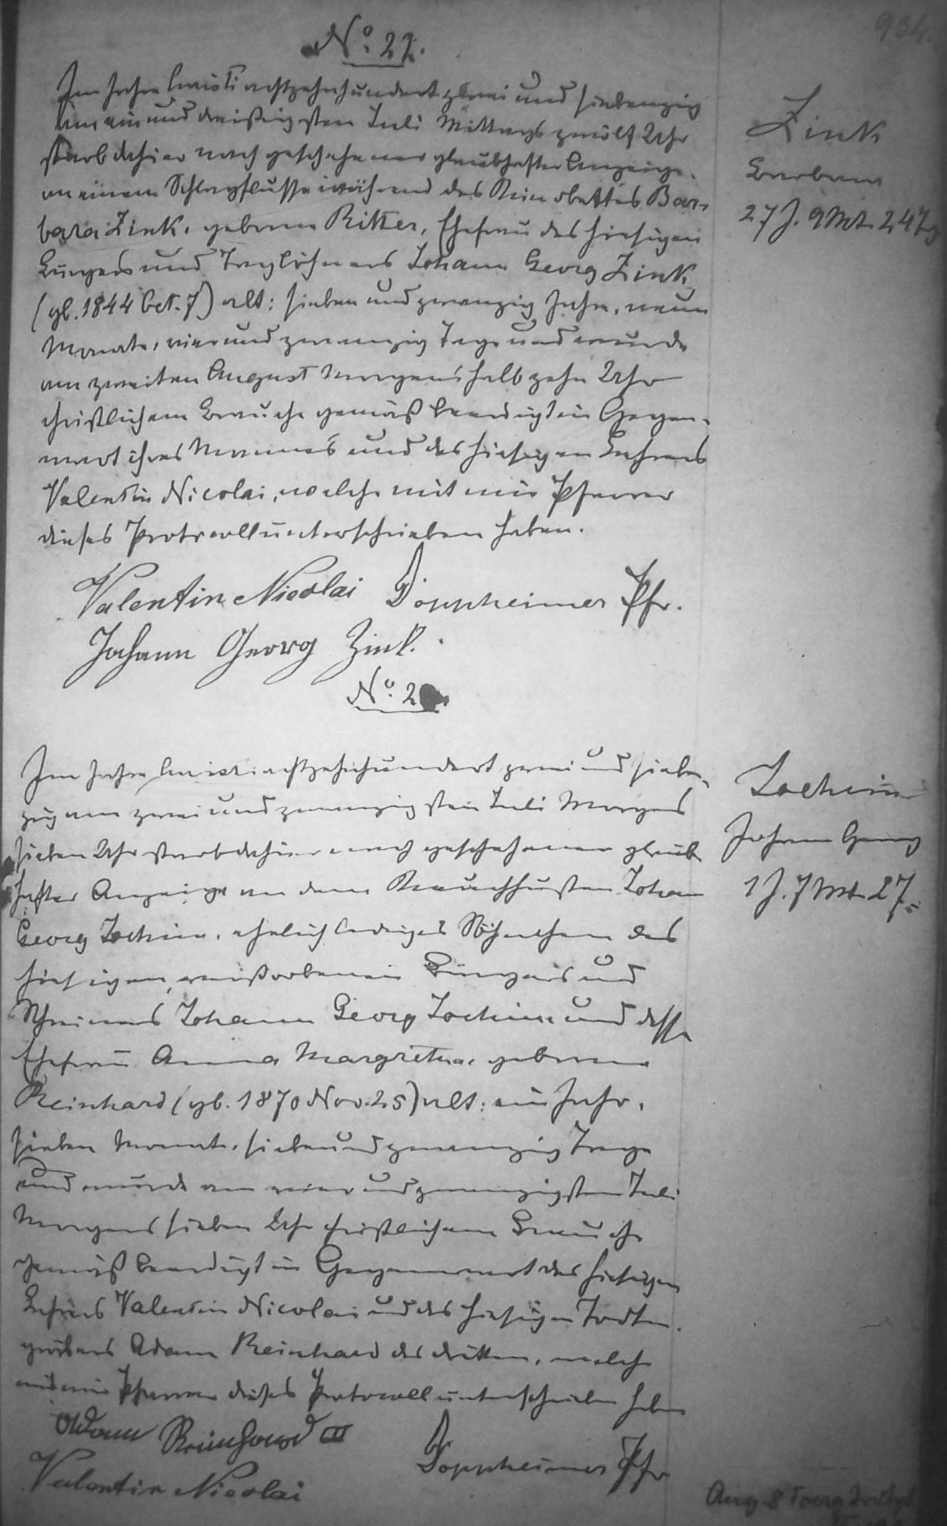 934.
No. 27.
Im Jahre Christi achtzehnhundert zwei und siebenzig
am ein und dreißigsten Juli Mittags zwölf Uhr
starb dahier nach geschehener glaubhafter Anzeige
an einem Schlagflusse während des Kindbettes Bar-
bara Zink, geborene Ritter, Ehefrau des hiesigen
Bürgers und Taglöhners Johann Georg Zink
(gb. 1844 Oct. 7) alt: sieben und zwanzig Jahr, neun
Monate, vier und zwanzig Tage und wurde
am zweiten August Morgens halb zehn Uhr
christlichem Brauche gemäß beerdigt in Gegen-
wart ihres Mannes und des hiesigen Lehrers
Valentin Nicolai, welche mit mir Pfarrer
dieses Protocoll unterschrieben haben.
Valentin Nicolai Doppheimer Pfr.
Johann Georg Zink.
Zink
Barbara
27 J. 9 Mt. 24 Tg
No. 2
Im Jahre Christi achtzehnhundert zwei und sieben-
zig am zwei und zwanzigsten Juli Morgens
sieben Uhr starb dahier nach geschehener glaub-
hafter Anzeige an dem Keuchhusten Johann
Georg Jochim, ehelich lediges Söhnchen des
hiesigen verstorbenen Bürgers und
Schreiners Johann Georg Jochim und dessen
Ehefrau Anna Margretha, geborene
Reinhard (gb. 1870 Nov. 25) alt: ein Jahr,
sieben Monate, sieben und zwanzig Tage
und wurde am vier und zwanzigsten Juli
Morgens sieben Uhr christlichem Brauche
gemäß beerdigt in Gegenwart des hiesigen
Lehrers Valentin Nicolai und des hiesigen Todten-
gräbers Adam Reinhard des dritten, welche
mit mir Pfarrer dieses Protocoll unterschrieben haben
Adam Reinhard III
Doppheimer Pfr
Valentin Nicolai
Jochim
Johann Georg
1 J. 7 Mt. 27
Aug 8